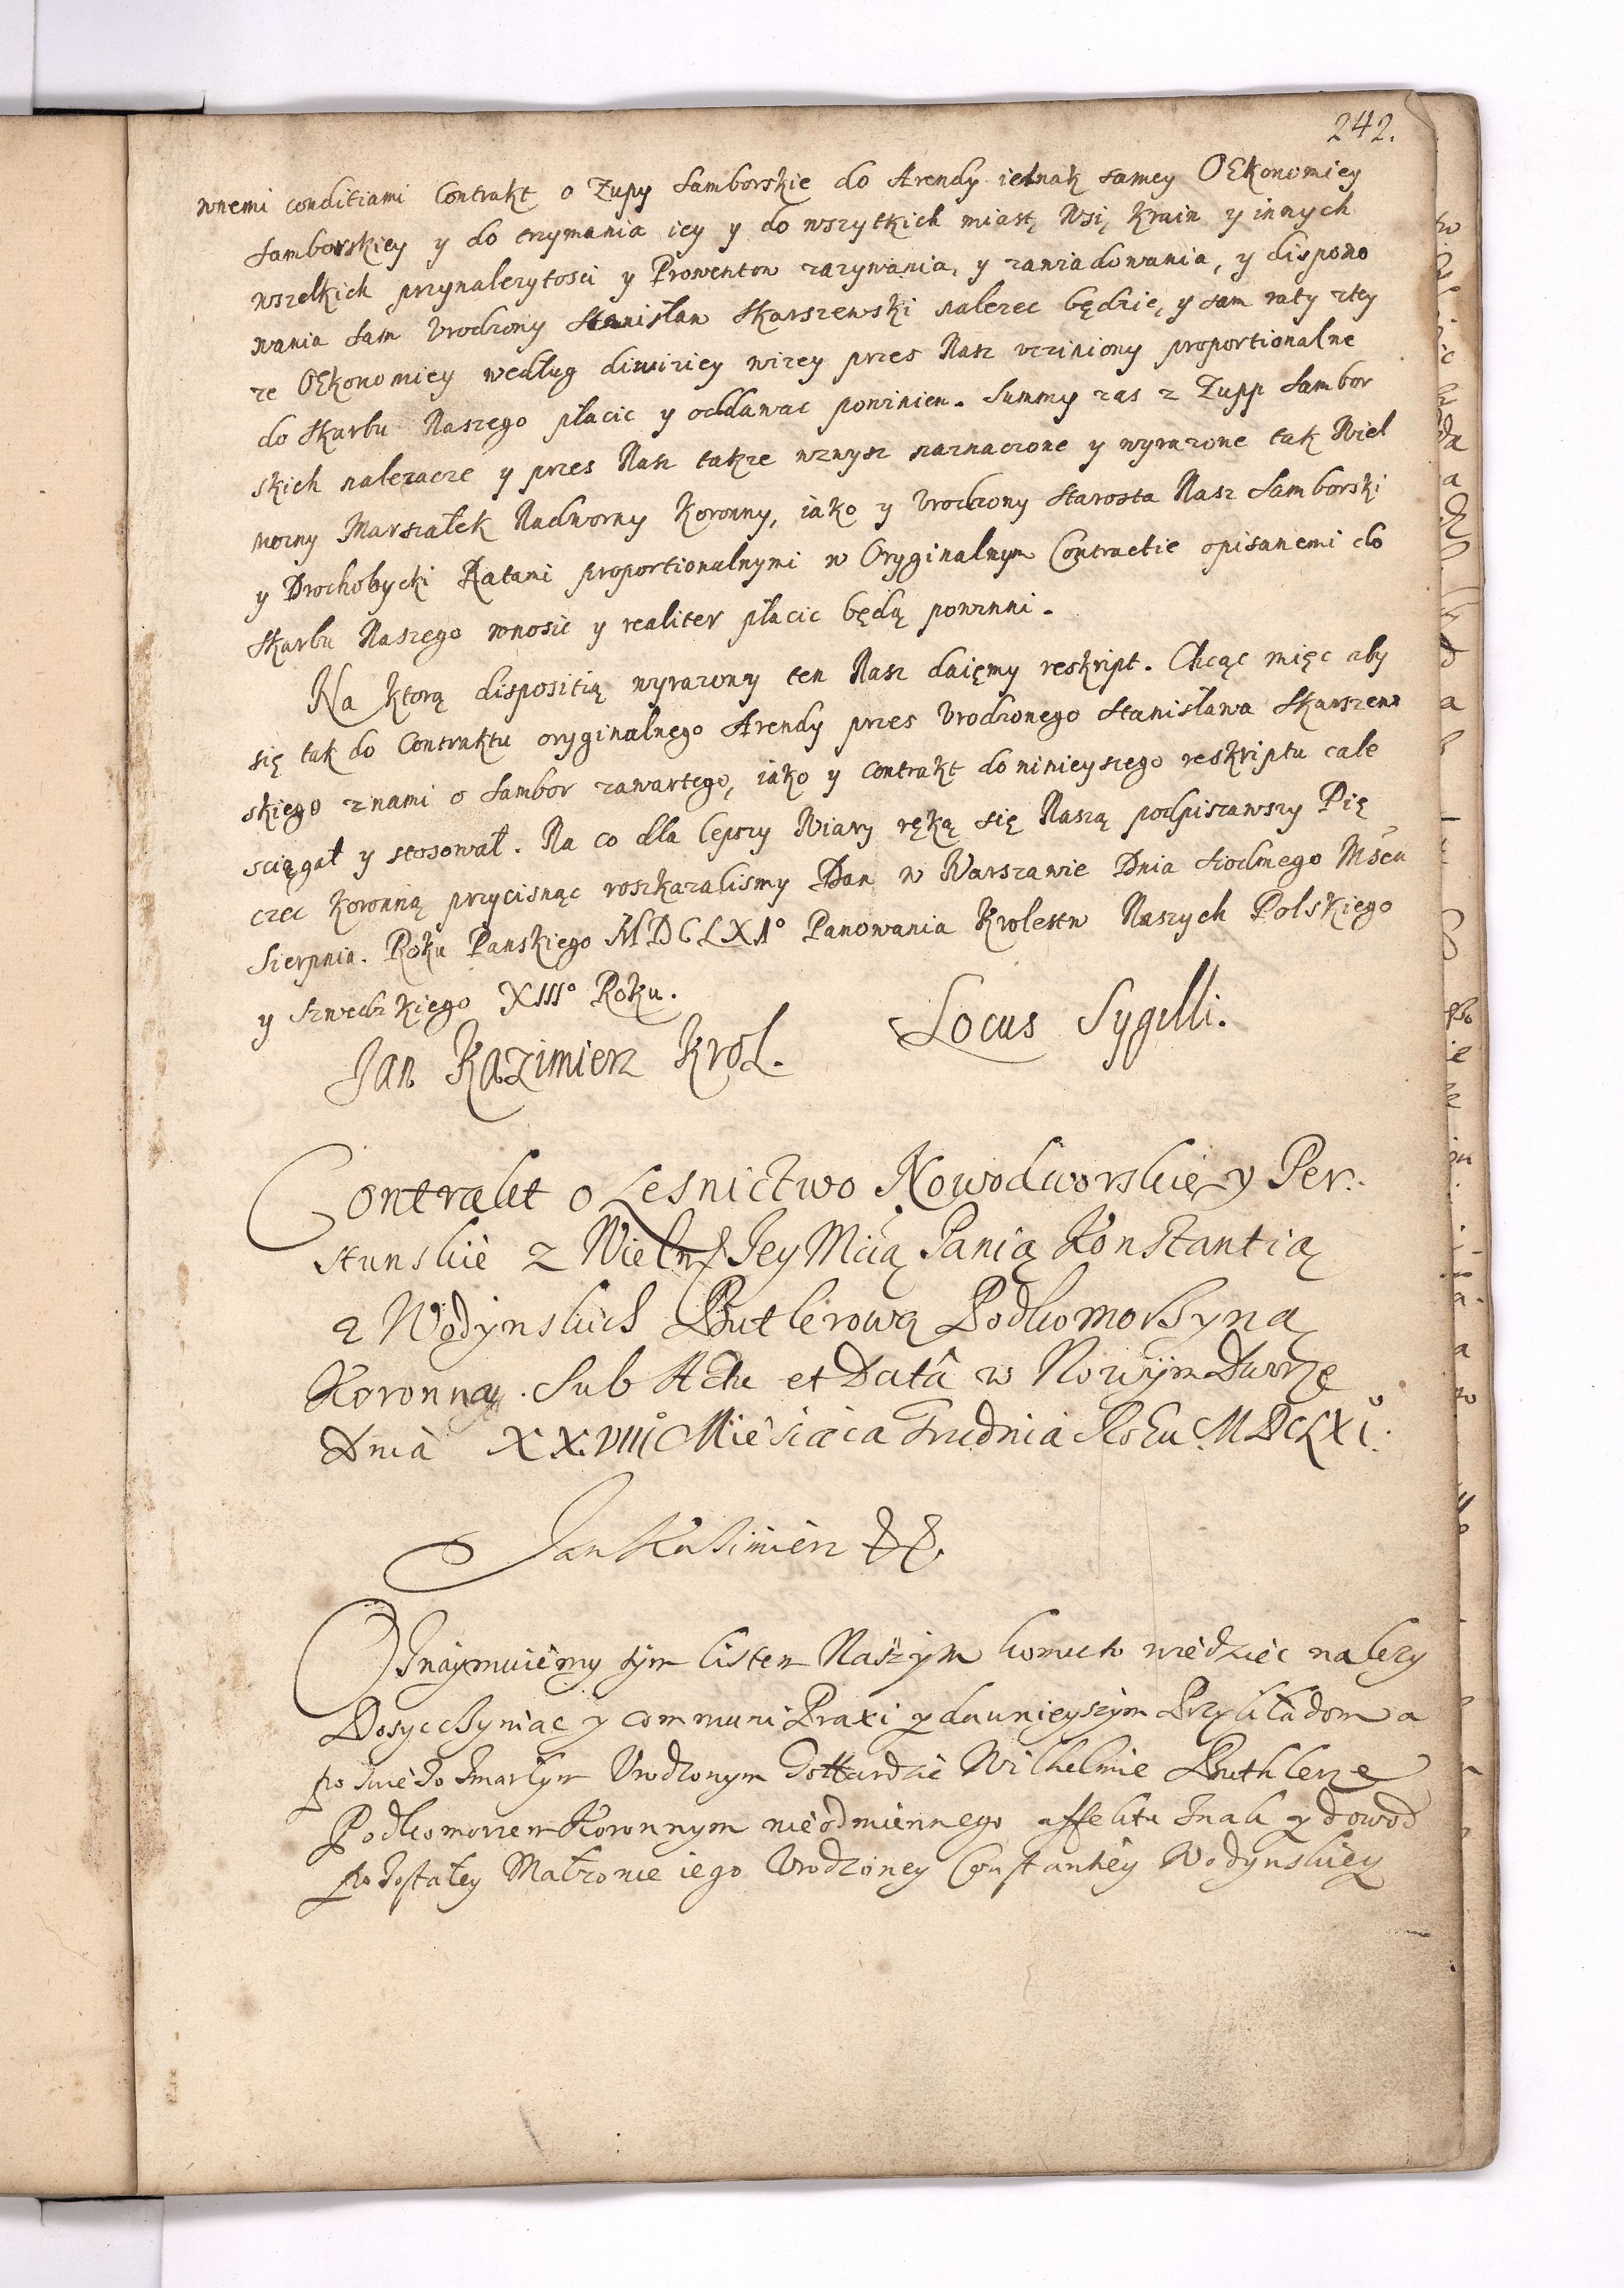 242.
wnemi conditiami Contrakt o Zupy Samborskie do Arendy iednak samey OEkonomiey
Samborskiey y do trzymania iey y do wszytkich miast, Wsi, Krain y innych
wszelkich przynalezytosci y Prowentow zazywania, y zawiadowania, y dispono
wania sam Vrodzony Stanisław Skarszewski nalezec będzie, y sam raty z tey
ze OEkonomiey według diwiziey wizey przes Nasz vcziniony proportionalne
do Skarbu Naszego płacic y oddawac powinien. Summy zas z Zupp Sambor
skich nalezacze y przes Nasz takze wznysz naznaczone y wyrazone tak Wiel
mozny Marszałek Nadworny Koronny, iako y Vrodzony Starosta Nasz Samborski
y Drochobycki Ratami proportionalnymi w Oryginalnym Contractie opisanemi do
Skarbu Naszego wnosic y realiter płacic będą powinni.
Na Ktorą dispositią wyrazony ten Nasz daięmy reskript. Chcąc mięc aby
się tak do Contraktu oryginalnego Arendy przes Vrodzonego Stanisława Skarszew
skiego z nami o Sambor zawartego, iako y Contrakt do ninieyszego reskriptu cale
sciągał y stosował. Na co dla lepszy Wiary ręką się Naszą podpisawszy Pię
czec Koronną przycisnąc roszkazalismy Dan w Warszawie Dnia siodmego Mśca
Sierpnia. Roku Panskiego MDCLXI° Panowania Krolestw Naszych Polskiego
y Szwedzkiego XIII° Roku.
Jan Kazimierz Krol. Locus Sygilli.
Contrakt o Lesnictwo Nowodworskie y Per
stunskie z Wieln Jey Mcią Panią Konstantią
z Wodynskich Butlerową Podkomorzyną
Koronną. Sub Actu et Datâ w Nowym Dworze
Dnia XXVIII° Miesiąca Grudnia Roku MDCLXI°.
Jan Kazimierz
Oznaymuiemy tym listem Naszym komu to wiedziec nalezy
Dosyc czyniac y communi Praxi y dawnieyszym Przykładom a
po swiezo zmarłym Vrodzonym Gottardzie Wilhelmie Buthlerze
Podkomorzem Koronnym nieodmiennego affektu znak y dowod
pozostałey Małzonce iego Vrodzoney Constantiey Wodynskiey